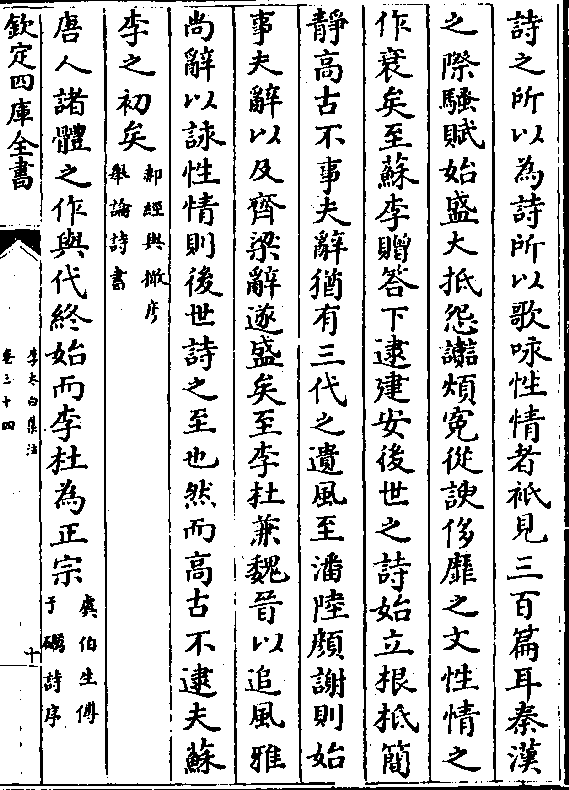 詩之所以為詩所以歌咏性情者祗見三百篇耳秦漢
之際騷賦始盛大抵怨讟煩寃從諛侈靡之文性情之
作衰矣至蘇李贈答下逮建安後世之詩始立根柢簡
靜高古不事夫辭猶有三代之遺風至潘陸顔謝則始
事夫辭以及齊梁辭遂盛矣至李杜兼魏晉以追風雅
尚辭以詠性情則後世詩之至也然而高古不逮夫蘇
李之初矣郝經與撖彦
舉論詩書
唐人諸體之作與代終始而李杜為正宗虞伯生傅
于礪詩序
欽定四庫全書
李太白集注
卷三十四
十